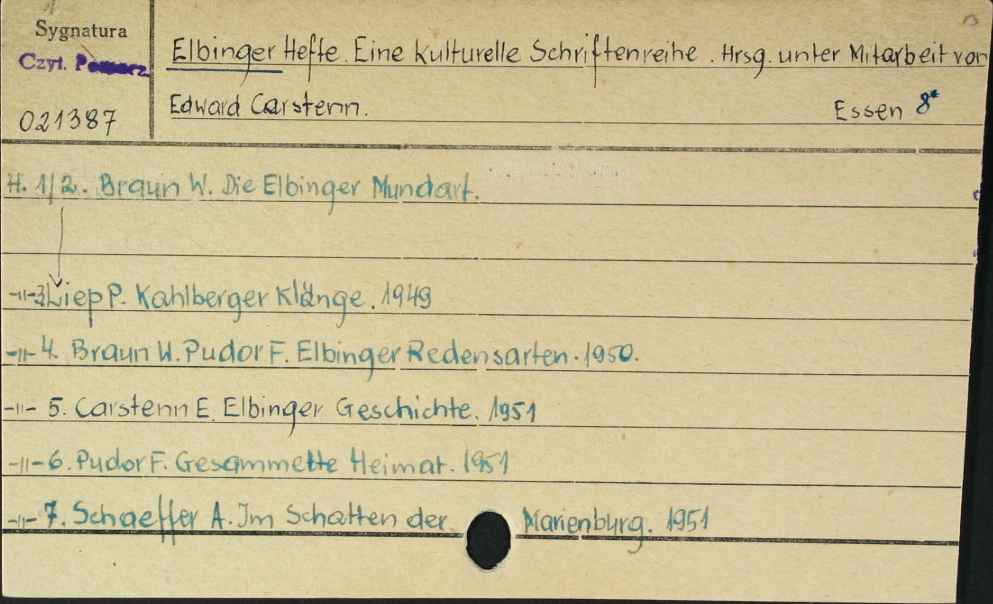 Sygnatura
Czyt. Pomorz.
021387
Elbinger Hefte. Eine kulturelle Schriftenreihe. Hrsg. unter Mitarbeit von
Edward Carstenn. Essen 8°
H. 1/2. Braun W. Die Elbinger Mundart.
-"-3 Liep P. Kahlberger Klänge. 1949
-"- 4. Braun W. Pudor F. Elbinger Redensarten. 1950.
-"- 5. Carstenn E. Elbinger Geschichte. 1951
-"- 6. Pudor F. Gesammette Heimat. 1951
-"- 7. Schaeffer A. Im Schatten der Marienburg. 1951